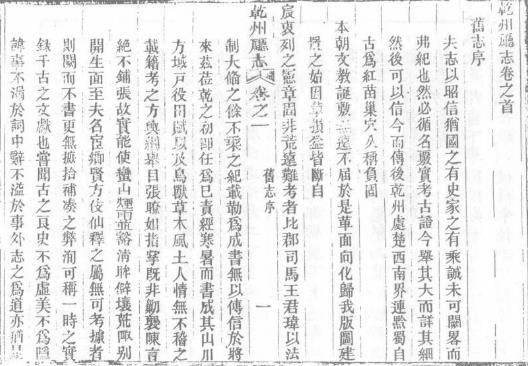 乾州廳志卷之首
舊志序
夫志以昭信猶國之有史家之有乘誠未可闕略而
弗紀也然必循名覈實考古證今舉其大而詳其細
然後可以信今而傳後乾州處楚西南界連黔蜀自
古為紅苗巢穴久稱負固
本朝文教誕敷無遠不届於是革面向化歸我版圖建
置之始因革損益皆斷自
宸衷列之憲章固非荒遠難考者比郡司馬王君瑋以法
乾州廳志 卷之一 舊志序 一
制大備之餘不亟之紀載勒為成書無以傳信於將
來茲莅乾之初即任為巳責經寒暑而書成其山川
方域戸役田賦以及鳥獸草木風土人情無不稽之
載籍考之方輿綱舉目張瞭如指掌既非勦襲陳言
絶不鋪張故實能使蠻山煙雨並豁清眸僻壤荒陬别
開生面至夫名宦鄉賢方伎仙釋之屬無可考據者
則闕而不書更無摭拾補湊之弊洵可稱一時之實
錄千古之文獻也嘗聞古之良史不為虛美不為隱
諱事不溺於詞中辭不溢於事外志之為道亦猶是